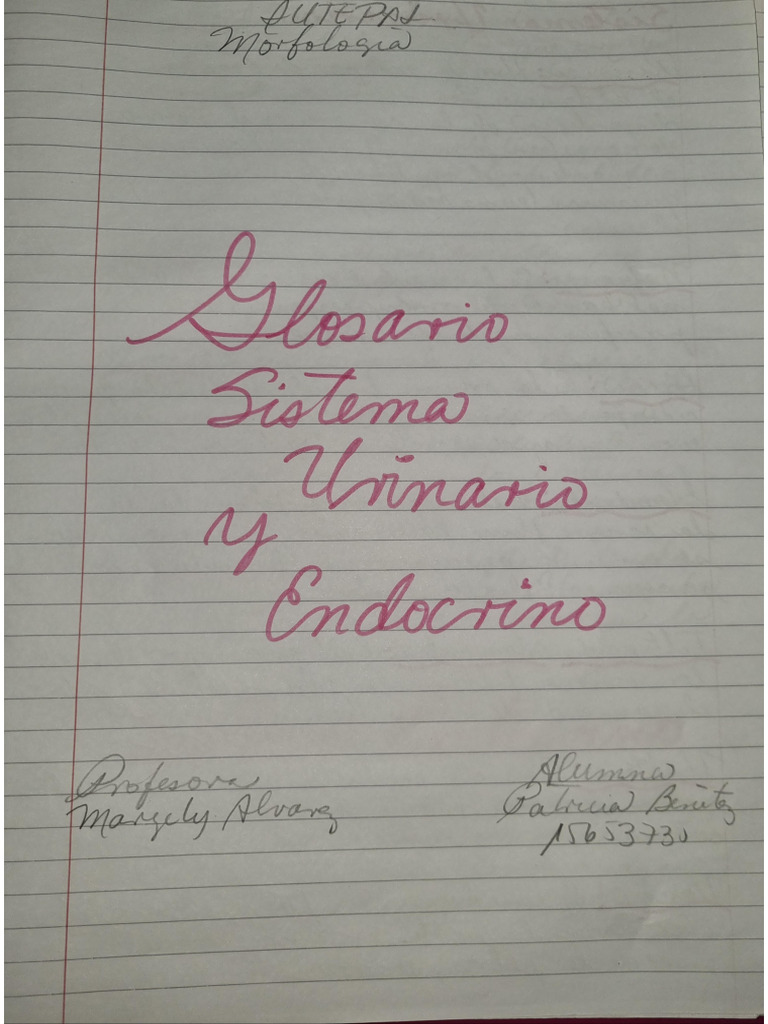 IUTEPAL
Morfología
Glosario
Sistema
Urinario
y
Endocrino
Profesora
Margely Alvarez
Alumna
Patricia Benitez
15653730